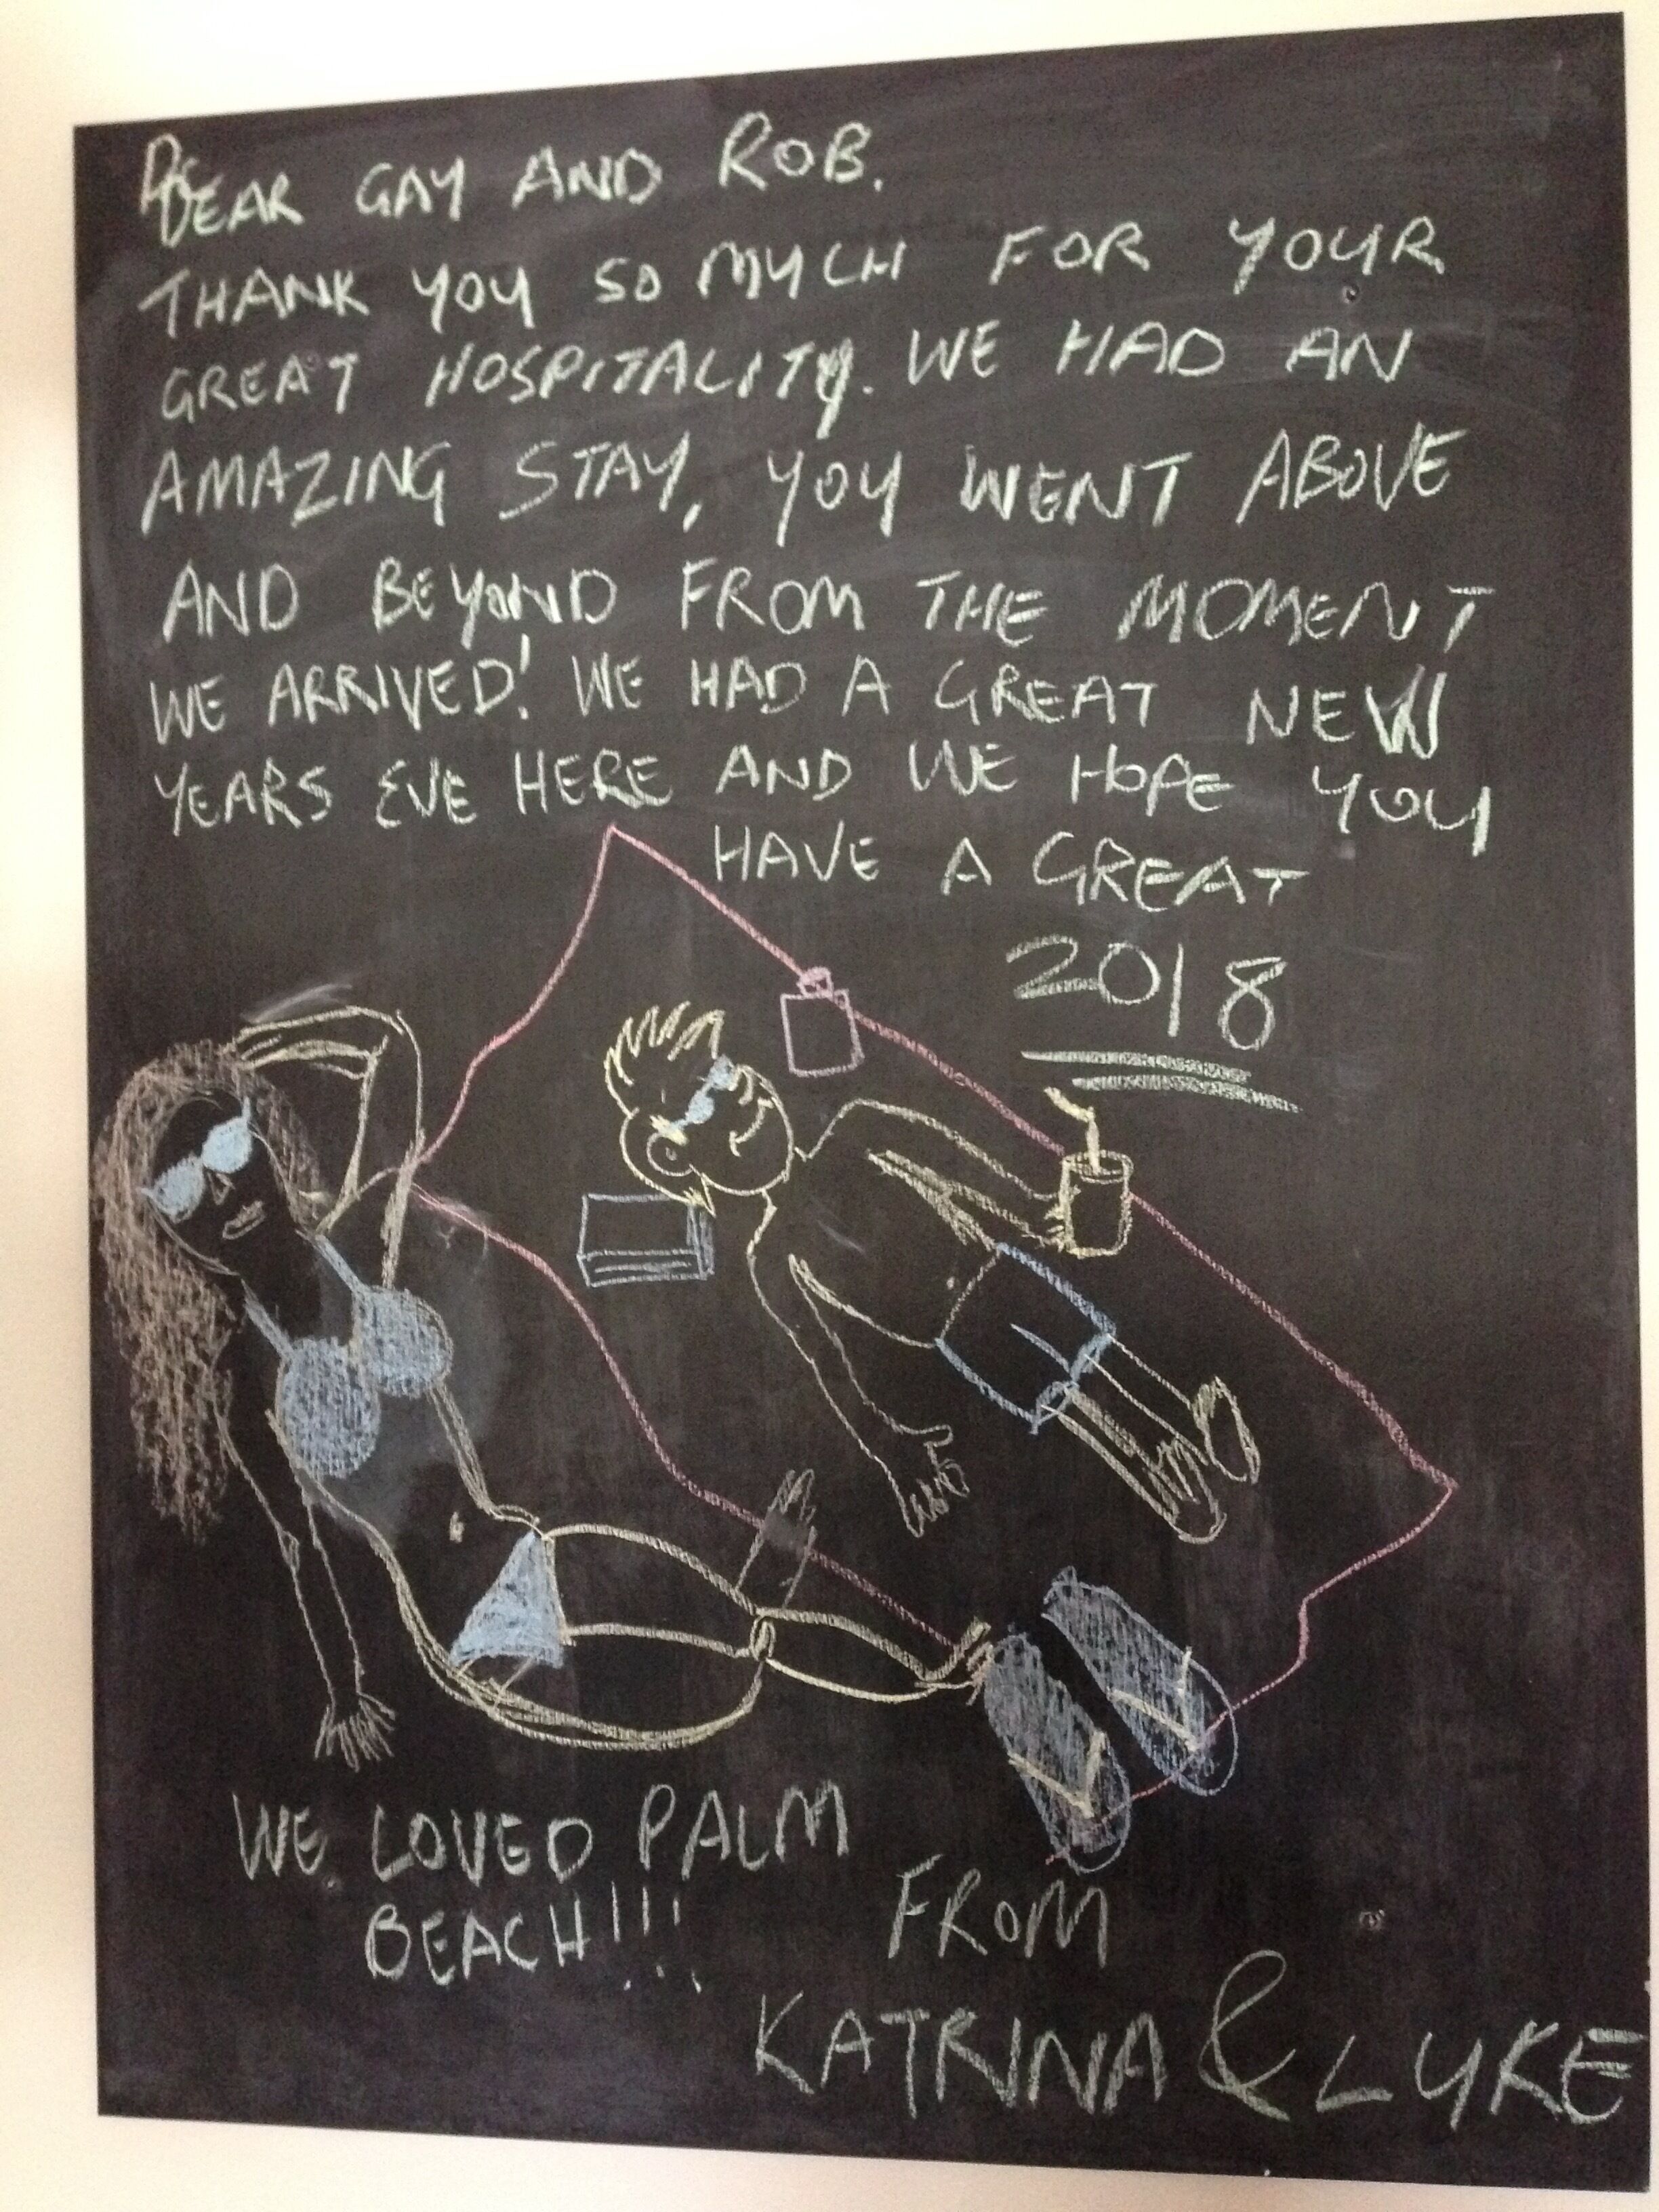 DEAR GAY AND ROB.
THANK YOU SO MUCH FOR YOUR
GREAT HOSPITALITY. WE HAD AN
AMAZING STAY, YOU WENT ABOVE
AND BEYOND FROM THE MOMENT
WE ARRIVED! WE HAD A GREAT NEW
YEARS EVE HERE AND WE HOPE YOU
HAVE A GREAT
2018
WE LOVED PALM
BEACH!!!
FROM
KATRINA & LUKE